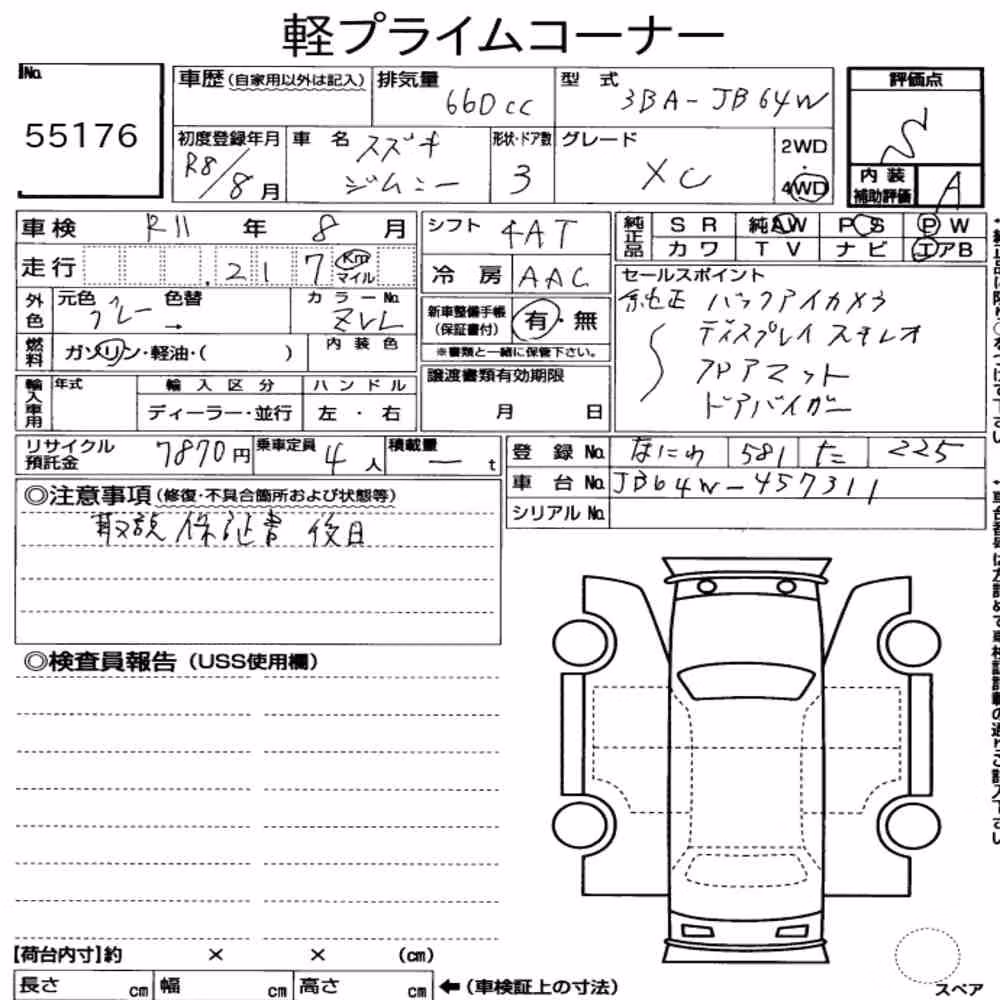 軽プライムコーナー
No.
55176
車歴(自家用以外は記入)
排気量
660cc
型式
3BA-JB64W
評価点
S
初度登録年月
R8/8月
車名
スズキ
ジムニー
形状・ドア数
3
グレード
XC
2WD
・
4WD
内装
補助評価
A
車検 R11年 8月
シフト 4AT
純正品
SR 純AW PS PW
カワ TV ナビ エアB
走行 .217 Km
マイル
冷房 AAC
セールスポイント
純正 バックアイカメラ
ディスプレイ ステレオ
フロアマット
ドアバイザー
外色
元色 グレー → 色替
カラーNo.
ZVL
新車整備手帳
(保証書付)
有・無
※書類と一緒に保管下さい。
燃料
ガソリン・軽油・( )
内装色
譲渡書類有効期限
月 日
輸入車用
年式
輸入区分
ディーラー・並行
ハンドル
左・右
リサイクル
預託金
7870円
乗車定員
4人
積載量
ー t
登録No. なにわ 581 た 225
車台No. JB64W-457311
シリアルNo.
◎注意事項(修復・不具合箇所および状態等)
取説 保証書 後日
◎検査員報告(USS使用欄)
【荷台内寸】約 × × (cm)
長さ cm 幅 cm 高さ cm ←(車検証上の寸法)
スペア